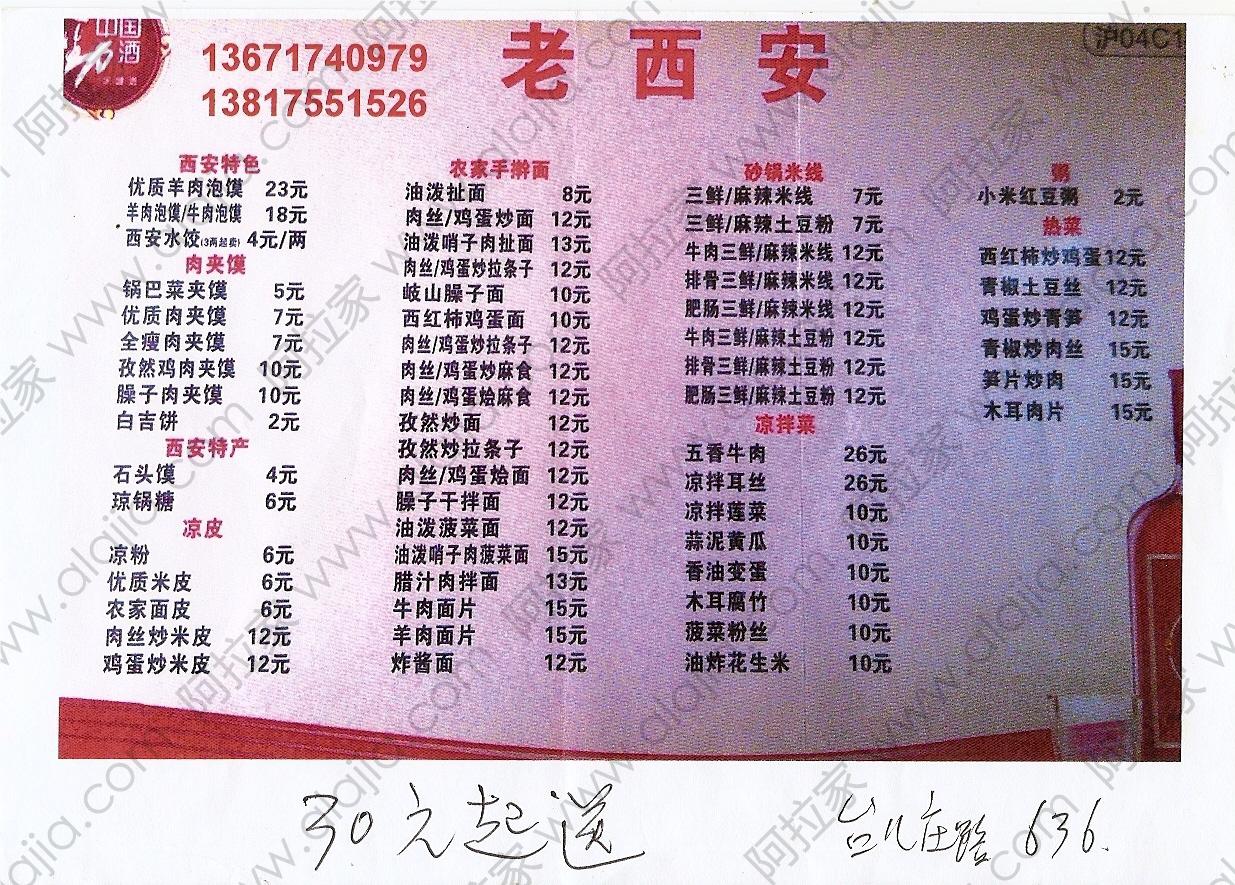 中国
酒
13671740979
13817551526
老西安
沪04C1
西安特色
优质羊肉泡馍 23元
羊肉泡馍/牛肉泡馍 18元
西安水饺(3两起卖) 4元/两
肉夹馍
锅巴菜夹馍 5元
优质肉夹馍 7元
全瘦肉夹馍 7元
孜然鸡肉夹馍 10元
臊子肉夹馍 10元
白吉饼 2元
西安特产
石头馍 4元
琼锅糖 6元
凉皮
凉粉 6元
优质米皮 6元
农家面皮 6元
肉丝炒米皮 12元
鸡蛋炒米皮 12元
农家手擀面
油泼扯面 8元
肉丝/鸡蛋炒面 12元
油泼哨子肉扯面 13元
肉丝/鸡蛋炒拉条子 12元
岐山臊子面 10元
西红柿鸡蛋面 10元
肉丝/鸡蛋炒拉条子 12元
肉丝/鸡蛋炒麻食 12元
肉丝/鸡蛋烩麻食 12元
孜然炒面 12元
孜然炒拉条子 12元
肉丝/鸡蛋烩面 12元
臊子干拌面 12元
油泼菠菜面 12元
油泼哨子肉菠菜面 15元
腊汁肉拌面 13元
牛肉面片 15元
羊肉面片 15元
炸酱面 12元
砂锅米线
三鲜/麻辣米线 7元
三鲜/麻辣土豆粉 7元
牛肉三鲜/麻辣米线 12元
排骨三鲜/麻辣米线 12元
肥肠三鲜/麻辣米线 12元
牛肉三鲜/麻辣土豆粉 12元
排骨三鲜/麻辣土豆粉 12元
肥肠三鲜/麻辣土豆粉 12元
凉拌菜
五香牛肉 26元
凉拌耳丝 26元
凉拌莲菜 10元
蒜泥黄瓜 10元
香油变蛋 10元
木耳腐竹 10元
菠菜粉丝 10元
油炸花生米 10元
粥
小米红豆粥 2元
热菜
西红柿炒鸡蛋 12元
青椒土豆丝 12元
鸡蛋炒青笋 12元
青椒炒肉丝 15元
笋片炒肉 15元
木耳肉片 15元
30元起送
台儿庄路 636.
阿拉家 www.alajia.com